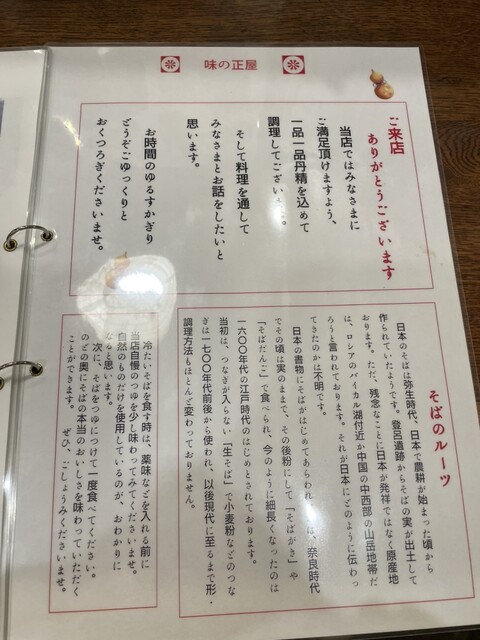 味の正屋
ご来店
ありがとうございます
当店ではみなさまに
ご満足頂けますよう、
一品一品丹精を込めて
調理してござい
そして料理を通して
みなさまとお話をしたいと
思います。
お時間のゆるすかぎり
どうぞごゆっくりと
おくつろぎくださいませ。
そばのルーツ
日本のそばは弥生時代、日本で農耕が始まった頃から
作られていたようです。登呂遺跡からそばの実が出土して
おります。ただ、残念なことに日本が発祥ではなく原産地
は、ロシアのバイカル湖付近か中国の中西部の山岳地帯だ
ろうと言われております。それが日本にどのように伝わっ
てきたのかは不明です。
日本の書物にそばがはじめてあらわれ は、奈良時代
でその頃は実のままで、その後粉にして「そばがき」や
「そばだんご」で食べられ、今のように細長くなったのは
一六〇〇年代の江戸時代のはじめとされております。
当初は、つなぎが入らない「生そば」で小麦粉などのつな
ぎは一七〇〇年代前後から使われ、以後現代に至るまで形・
調理方法もほとんど変わっておりません。
冷たいそばを食す時は、薬味などを入れる前に
当店自慢のつゆを少し味わってみてくださいませ。
自然のものだけを使用しているのが、おわかりに
なると思います。
次に、そばをつゆにつけて一度食べてください。
のどの奥にそばの本当のおいしさを味わっていただく
ことができます。 ぜひ、ごしょうみくださいませ。